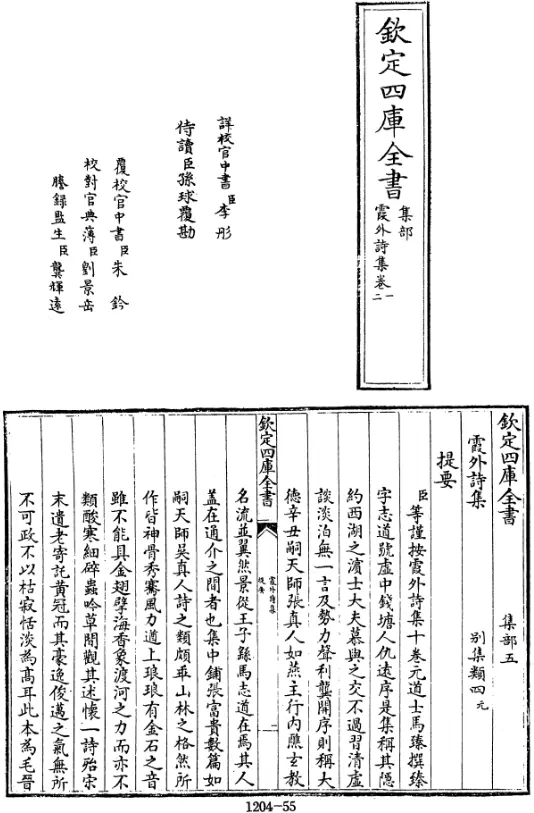 欽定四庫全書
集部
霞外詩集卷一
二
詳校官中書臣李彤
侍讀臣孫球覆勘
覆校官中書臣朱鈐
校對官典簿臣劉景岳
謄錄監生臣龔輝遠
欽定四庫全書 集部五
霞外詩集 別集類四元
提要
臣等謹按霞外詩集十卷元道士馬臻撰臻
字志道號虛中錢塘人仇遠序是集稱其隱
約西湖之濱士大夫慕與之交不過習清虛
談淡泊無一言及勢力聲利龔開序則稱大
德辛丑嗣天師張真人如燕主行內醮玄教
欽定四庫全書
霞外詩集
提要
一
名流並翼然景從王子繇馬志道在焉其人
蓋在通介之間者也集中鋪張富貴數篇如
嗣天師吴真人詩之類頗乖山林之格然所
作皆神骨秀騫風力遒上琅琅有金石之音
雖不能具金翅擘海香象渡河之力而亦不
類酸寒細碎蟲吟草間觀其述懷一詩殆宋
末遺老寄託黃冠而其豪逸俊邁之氣無所
不可政不以枯寂恬淡為高耳此本為毛晉
1204-55